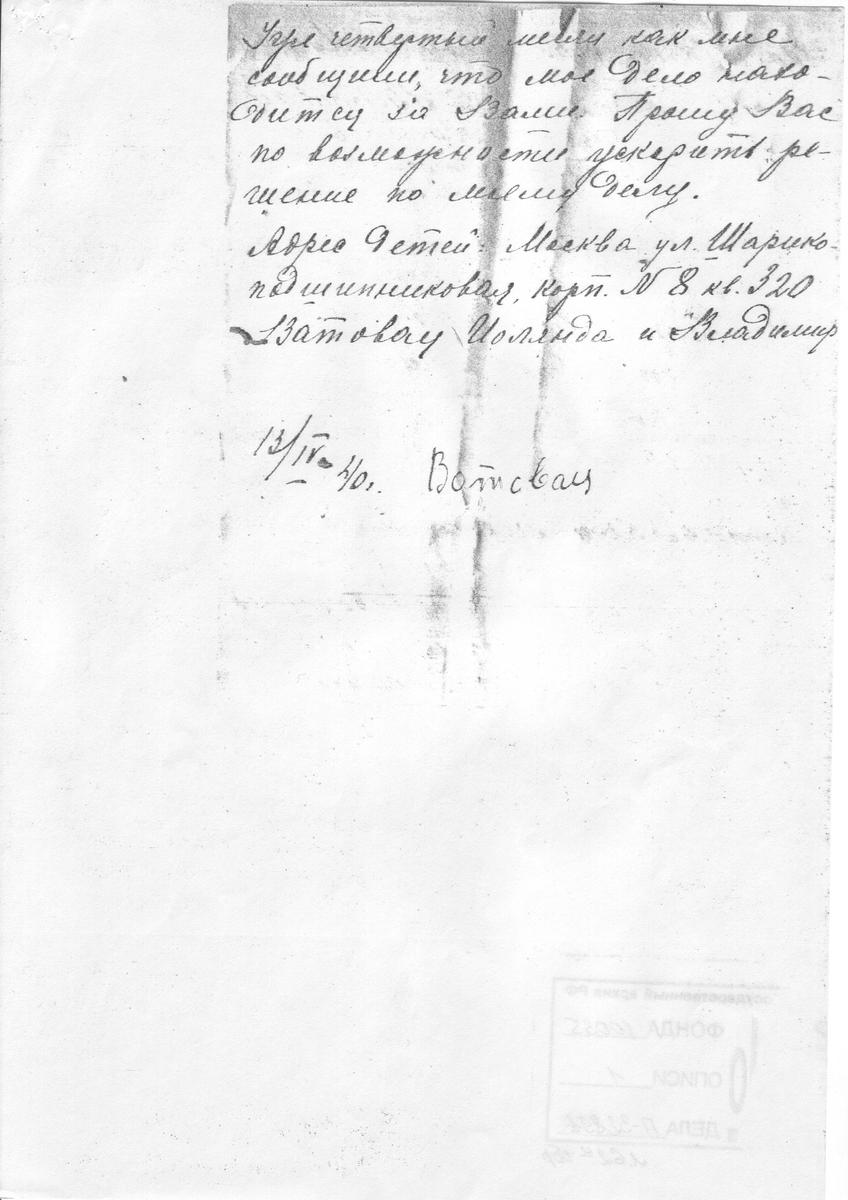 Уже четвертый месяц как мне
сообщили, что мое дело нахо-
дится за Вами. Прошу Вас
по возможности ускорить ре-
шение по моему делу.
Адрес детей: Москва ул. Шарико-
подшипниковая, корп. N 8 кв. 320
Ватовац Иолянда и Владимир
13/IV 40. Ватовац
государственный архив РФ
ФОНДА 10035
ОПИСИ 1
ДЕЛА